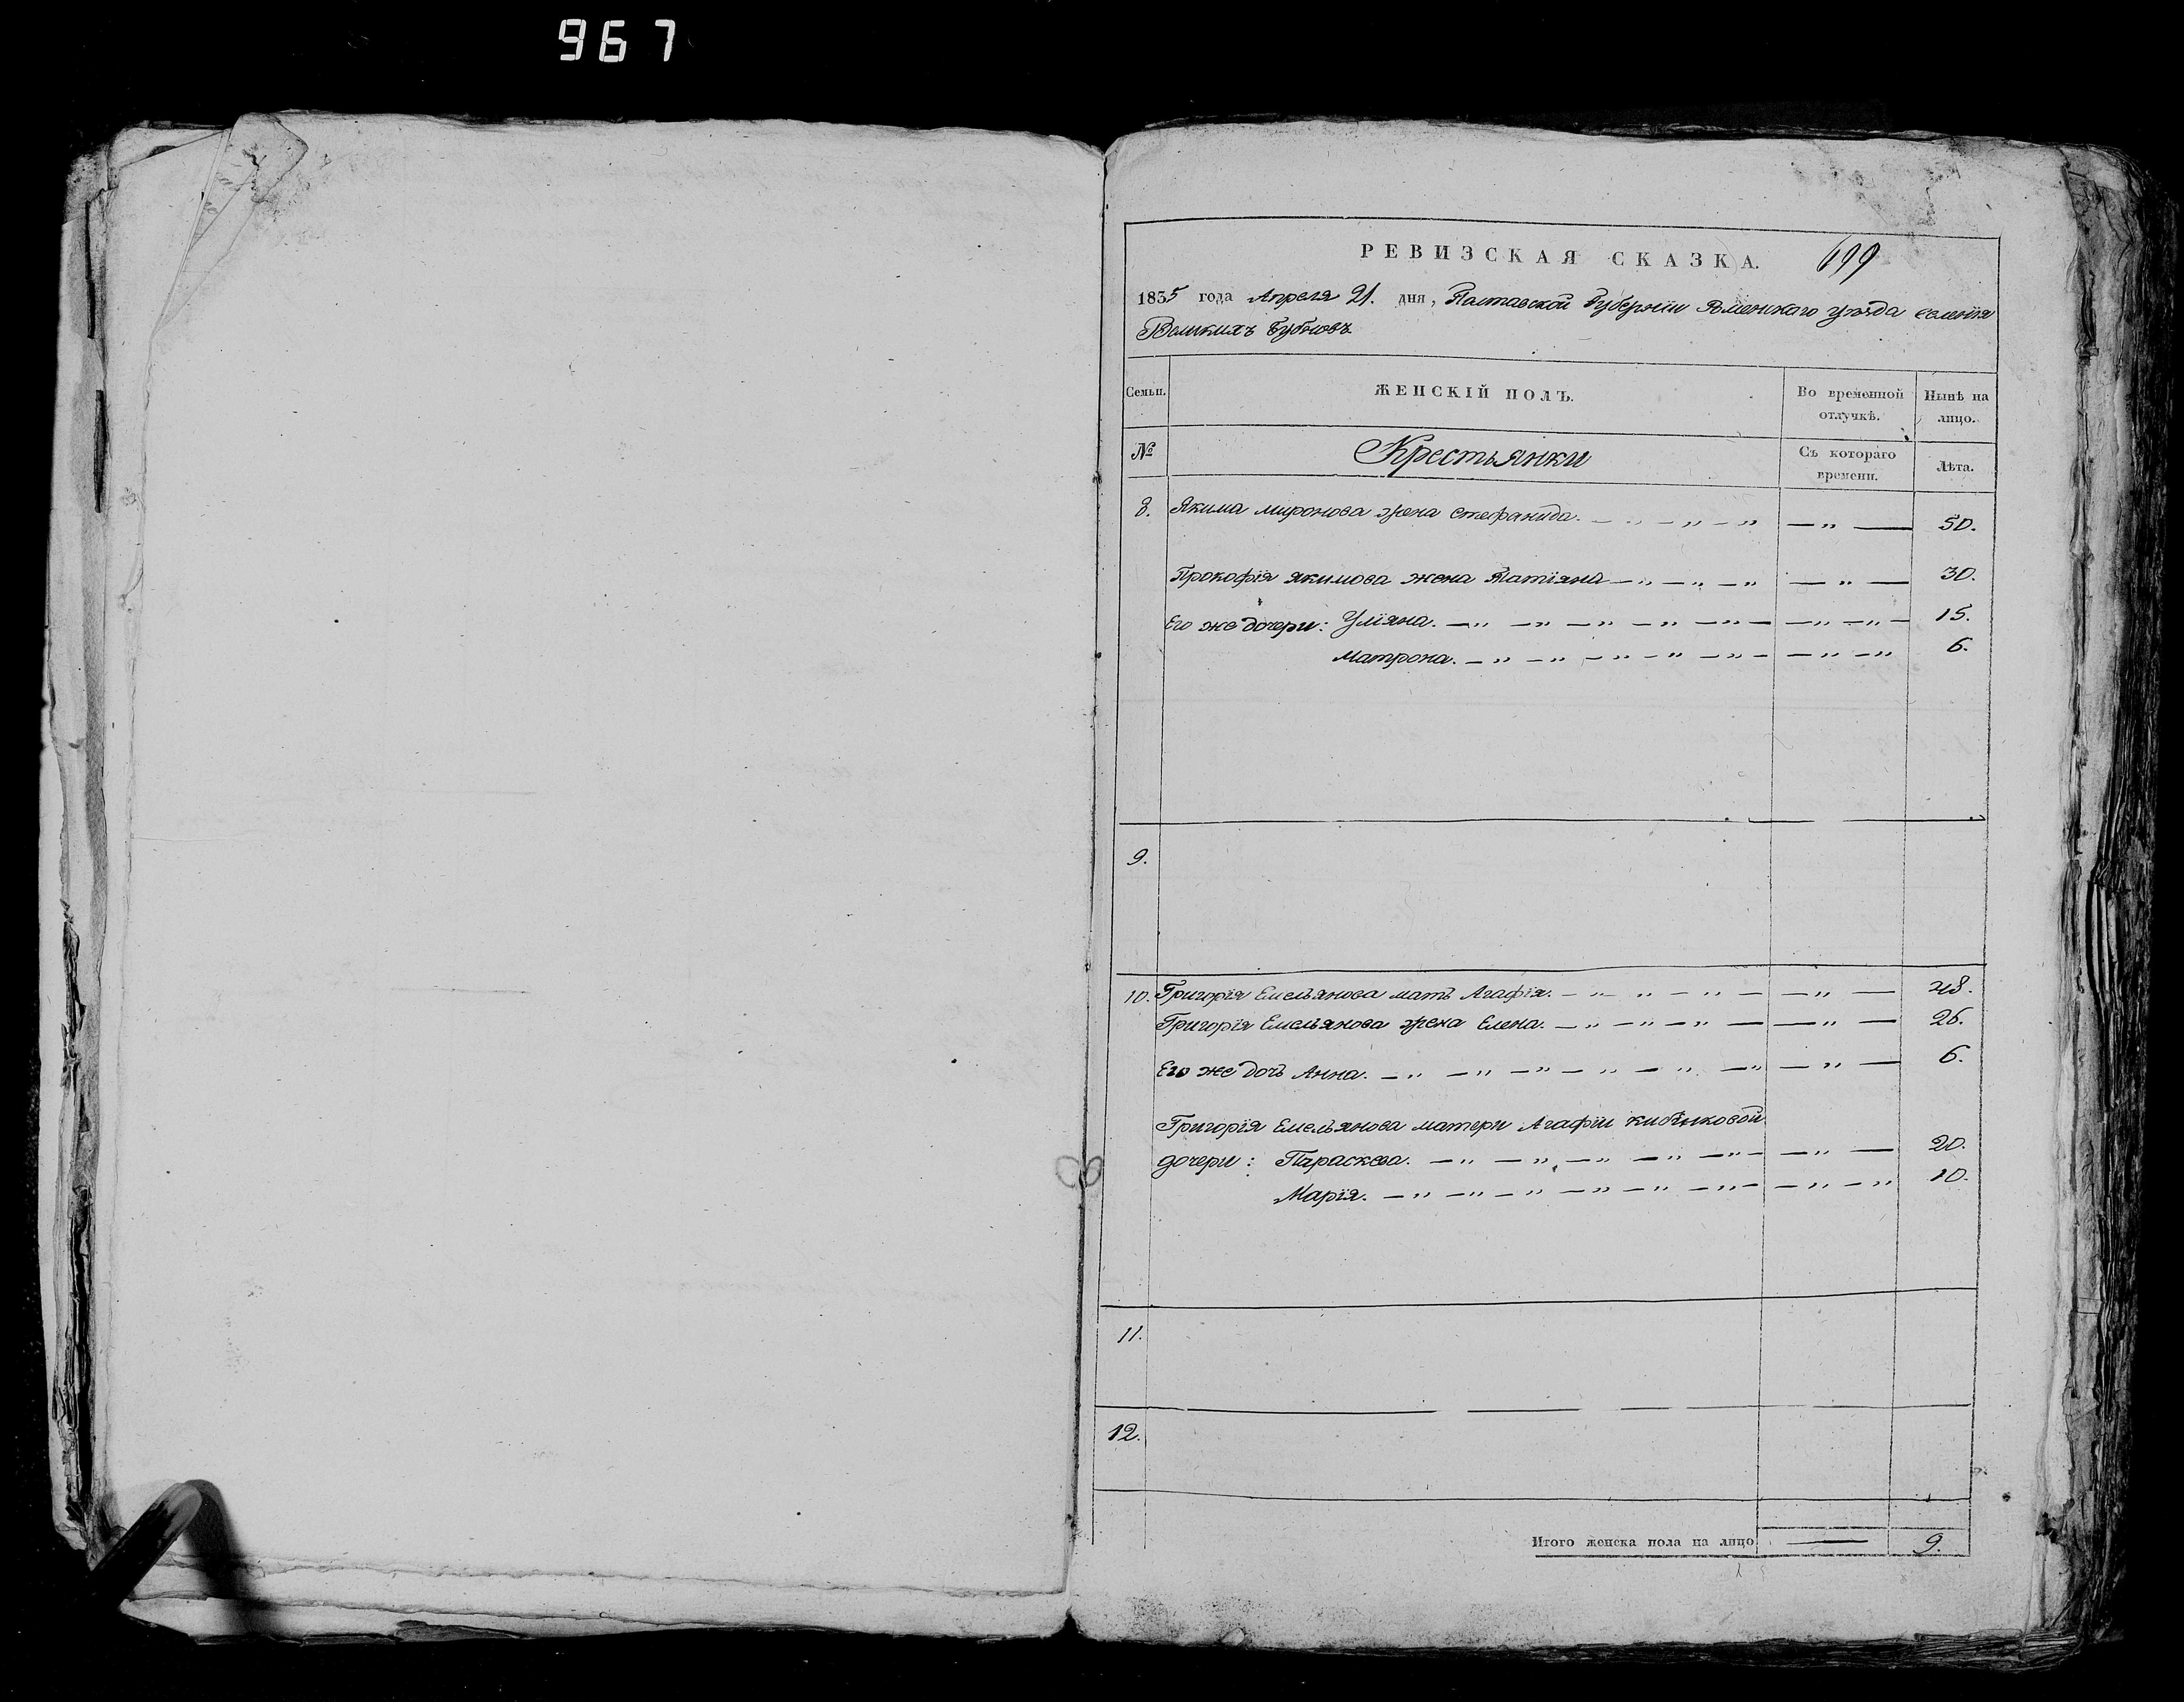 967
РЕВИЗСКАЯ СКАЗКА. 699
1835 года Апреля 21. дня, Полтавской Губерніи Роменскаго уѣзда селенія
Великихъ Бубновъ
Семьи. ЖЕНСКІЙ ПОЛЪ. Во временной отлучкѣ. Нынѣ на лицо.
№ Крестьянки Съ котораго времени. Лѣта.
8. Якима миронова жена стефанида. — „ — „ — „ — „ — 50.
Прокофія якимова жена Татіяна — „ — „ — „ — „ — 30.
Его же дочери: Уліяна. — „ — „ — „ — „ — „ — — „ — „ — 15.
Матрона. — „ — „ — „ — „ — „ — — „ — „ 6.
9.
10. Григорія Емельянова мать Агафія. — „ — „ — „ — — „ — 48.
Григорія Емельянова жена Елена. — „ — „ — „ — — „ — 26.
Его же дочь Анна. — „ — „ — „ — „ — „ — „ — „ — 6.
Григорія Емельянова матери Агафіи
дочери: Параскева. — „ — „ — „ — „ — „ — — „ — 20.
Марія. — „ — „ — „ — „ — „ — „ — — „ — „ 10.
11.
12.
Итого женска пола на лицо — 9.